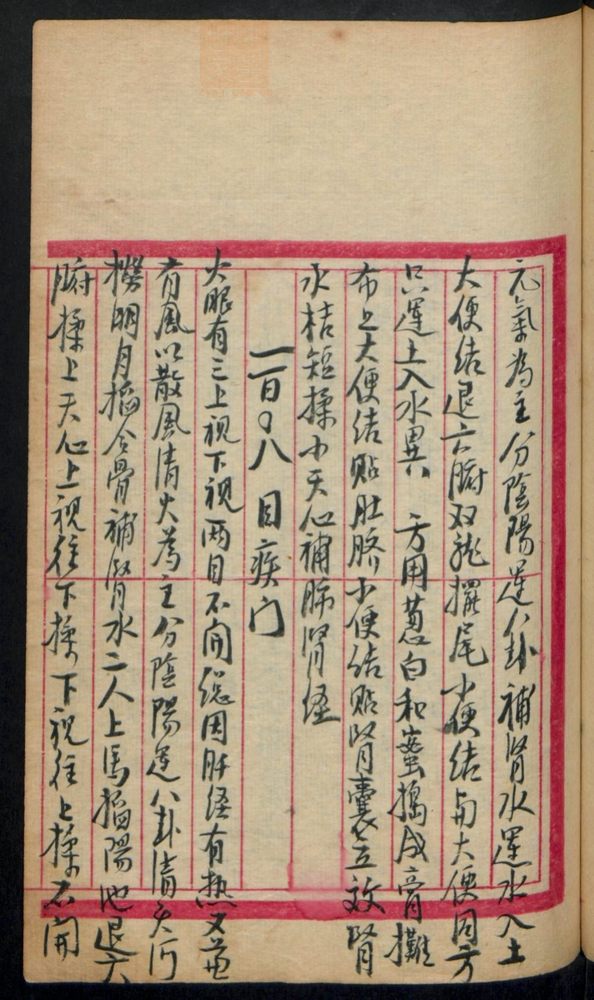 元氣為主分陰陽運八卦補腎水運水入土
大便结退六腑双龍擺尾小便结与大便同方
只運土入水異 方用葱白和蜜搗成膏攤
布上大便结贴肚脐小便结贴腎囊立效腎
水枯短揉小天心補肺腎经
一百〇八 目疾门
火眼有三上視下視两目不開總因肝经有热又兼
有風以散風清火為主分陰陽運八卦清天河
撈明月掐合骨補腎水二人上馬掐陽池退六
腑揉上天心上視往下揉下視往上揉不開